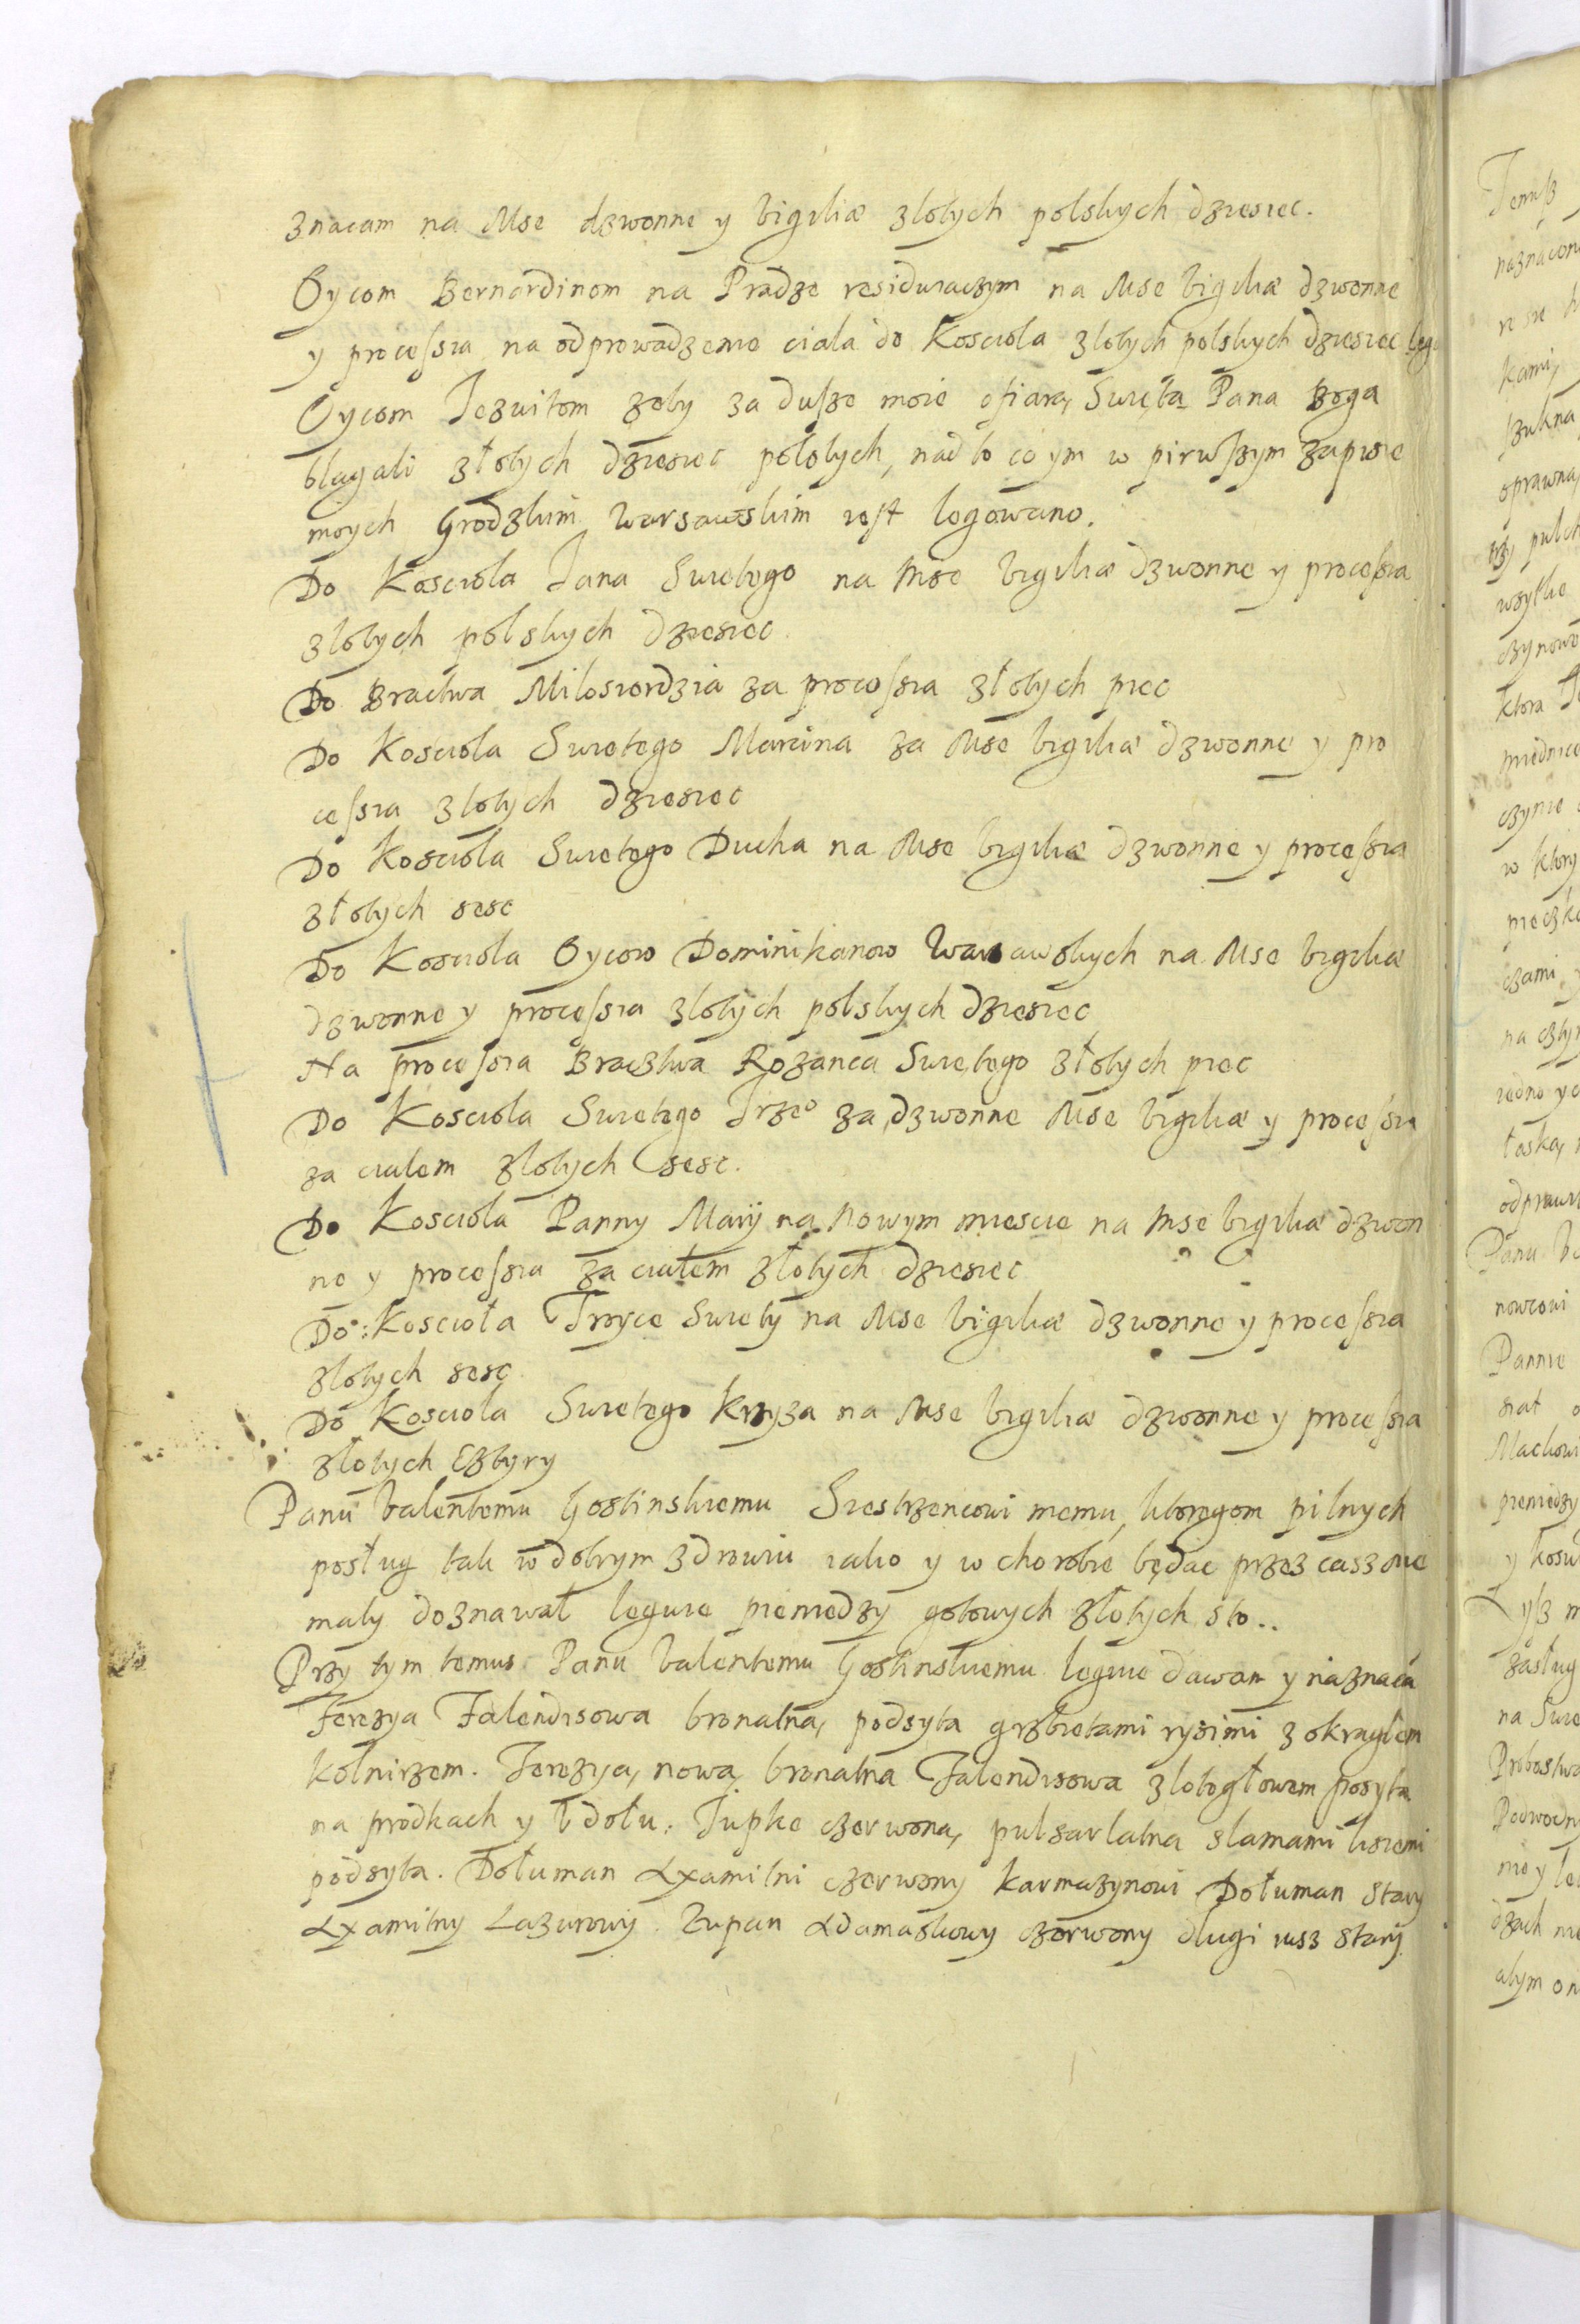 znacam na Mse dzwonne y bigiliæ zlotych polskych dziesiec.
Oycom Bernardinom na Pradze residuiaczym na Mse bigiliæ dzwonne
y processia na odprowadzenie ciala do Kosciola zlotych polskych dziesiec
Oycom Jezuitom zeby za dusze moie ofiarą Swiętą Pana Boga
blagali złotych dziesiec polotych, nad to co ym w pirwszym zapisie
moych Grodzkim Warsawskim iest legowano.
Do Kosciola Jana Swietego na Mse bigiliæ dzwonne y processia
zlotych polskych dziesiec.
Do Bractwa Milosiordzia za processia złotych piec
Do Kosciola Swietego Marcina za Mse bigiliæ dzwonne y pro
cessia zlotych dziesiec
Do Kosciola Swietego Ducha na Mse bigiliæ dzwonne y processia
złotych sesc
Do Kosciola Oycow Dominikanow Warsawskych na Mse bigiliæ
dzwonne y processia zlotych polskych dziesiec
Na processia Bracztwa Rozanca Swietego złotych piec
Do Kosciola Swietego Jrzeo za dzwonne Mse bigiliæ y processia
za cialem zlotych sesc.
Do Kosciola Panny Marij na Nowym miescie na Mse bigiliæ dzwon
ne y processia za ciałem złotych dziesiec
Do: Kosciola Troyce Swiety na Mse bigiliæ dzwonne y processia
zlotych sesc
Do Kosciola Swietego Krzyza na Mse bigiliæ dzwonne y processia
złotych Cztyry
Panu Valentemu Gostinskiemu Siestrzencowi memu, ktoregom pilnych
posług tak w dobrym zdrowiu iako y w chorobie będac przez cass nie
maly doznawał leguie pieniedzy gotowych złotych sto..
Przy tym temus Panu Valentemu Gostinskiemu leguie dawam y naznaca
Ferezya Falendisowa bronatna, podsyta grzbietami rysimi z okraglem
kołnirzem. Ferezya, nowa, bronatna Falendisowa zlotogłowem posyta
na prodkach y v dołu. Jupke czerwona, pulsarlatna slamami lisiemi
podsyta. Dołuman Axamitni czerwony karmazynowi Dołuman stary
Axamitny Lazurowy. Zupan Adamaskowy czerwony dlugi iusz stary